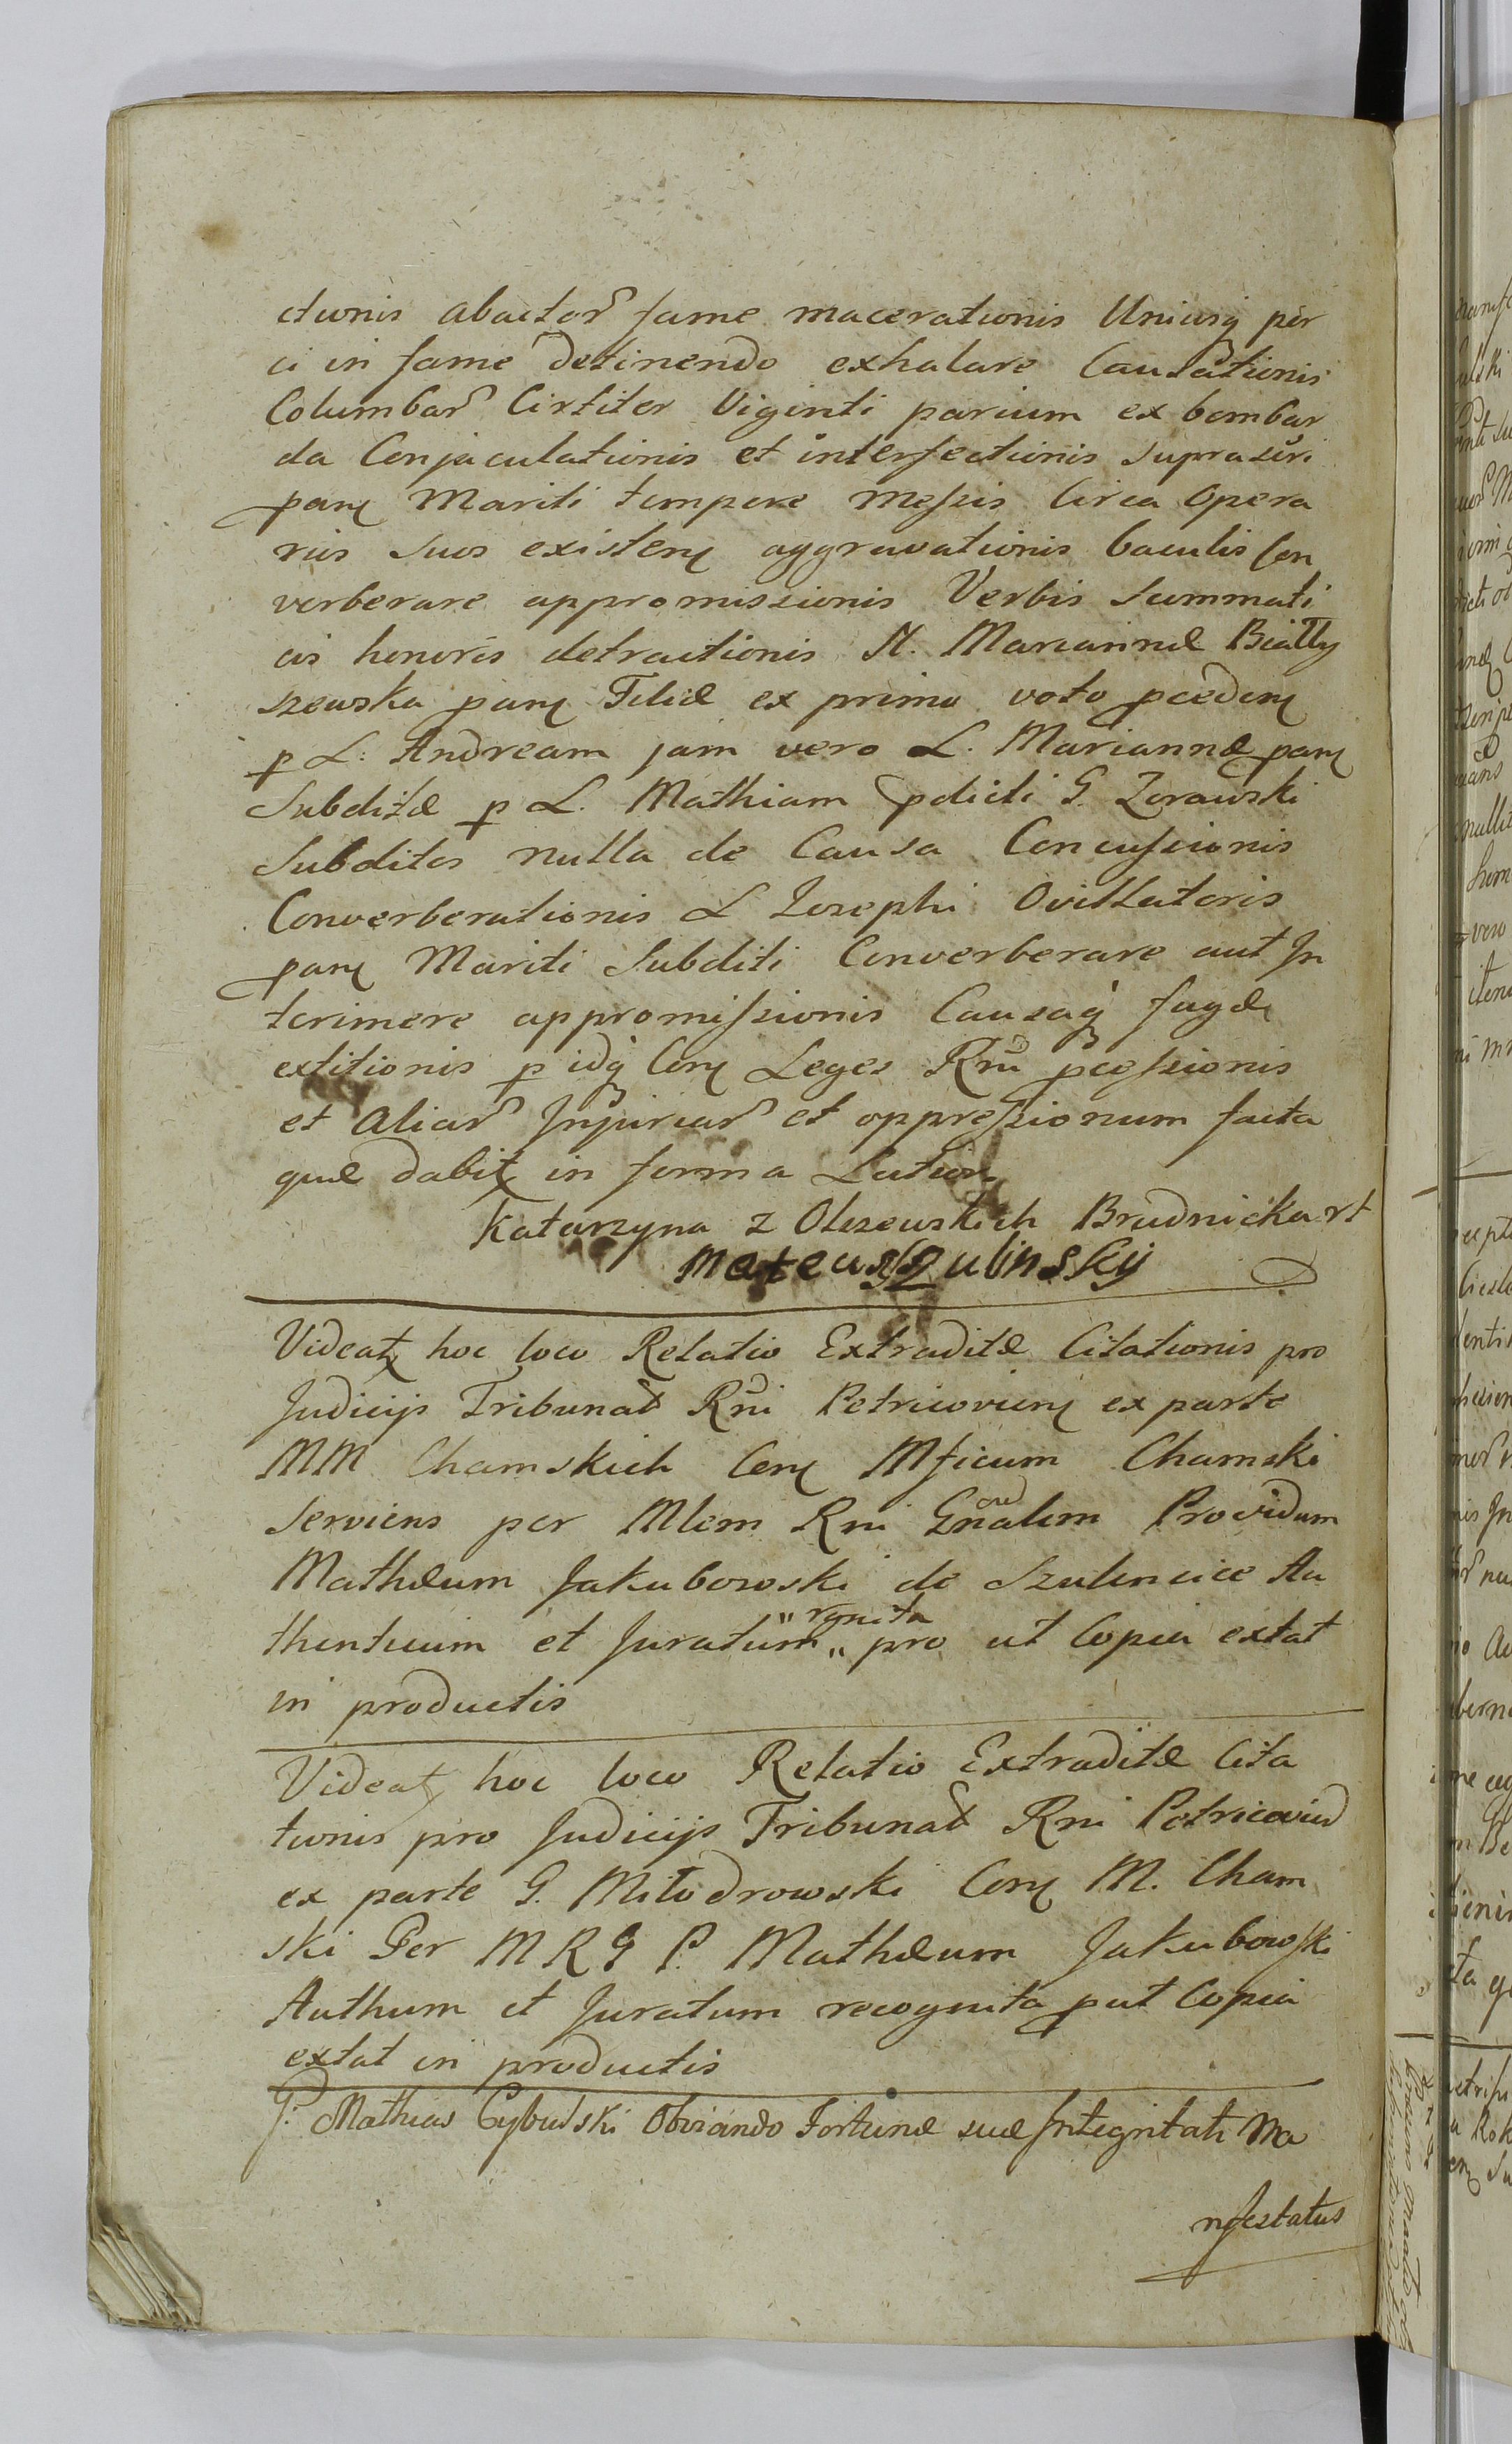 ctionis abactor fame macerationis Uniusq por
ci in fame detinendo exhalare Causationis
Columbar Cirtiter Viginti parium ex bombar
da Conjaculationis et interfectionis supra
pane Mariti tempore Messis Circa Opera
rios suos existen aggravationis baculis Con
verberare appromissionis Verbis summati
cis honoris detractionis N. Mariannæ Bially
szewska pan Filiæ ex primo voto pcedem
p L: Andream jam vero L. Mariannæ pan
Subditæ p L. Mathiam pdicti G. Zorawski
Subditos nulla de Causa Concussionis
Converberationis L Josephi Ovillatoris
pan Mariti Subditi Converberare aut In
terimere appromissionis Causaq fugæ
extitionis p idq Con Leges Rni pcessionis
et Aliar Injuriar et oppressionum facta
quæ dabit in forma Latiori
Katarzyna z Olszewskich Brudnicka rt
Mateusz Zulinsky
Videat hoc loco Relatio Extraditæ Citationis pro
Judicijs Tribunal Rni Petricovien ex parte
MM Chamskich Con Mficum Chamski
Serviens per Mlem Rni Gnalem Providum
Mathæum Jakubowski de Szulencice Au
thenticum et Juratum " rgnita " pro ut Copia extat
in productis
Videat hoc loco Relatio Extraditæ Cita
tionis pro Judicijs Tribunal Rni Petricovien
ex parte G. Miłodrowski Con M. Cham
ski Per M R G P. Mathæum Jakubowski
Authum et Juratum recognita put Copia
extat in productis
G. Mathias Cybulski Obviando Fortunæ suæ Integritati Ma
nfestatus